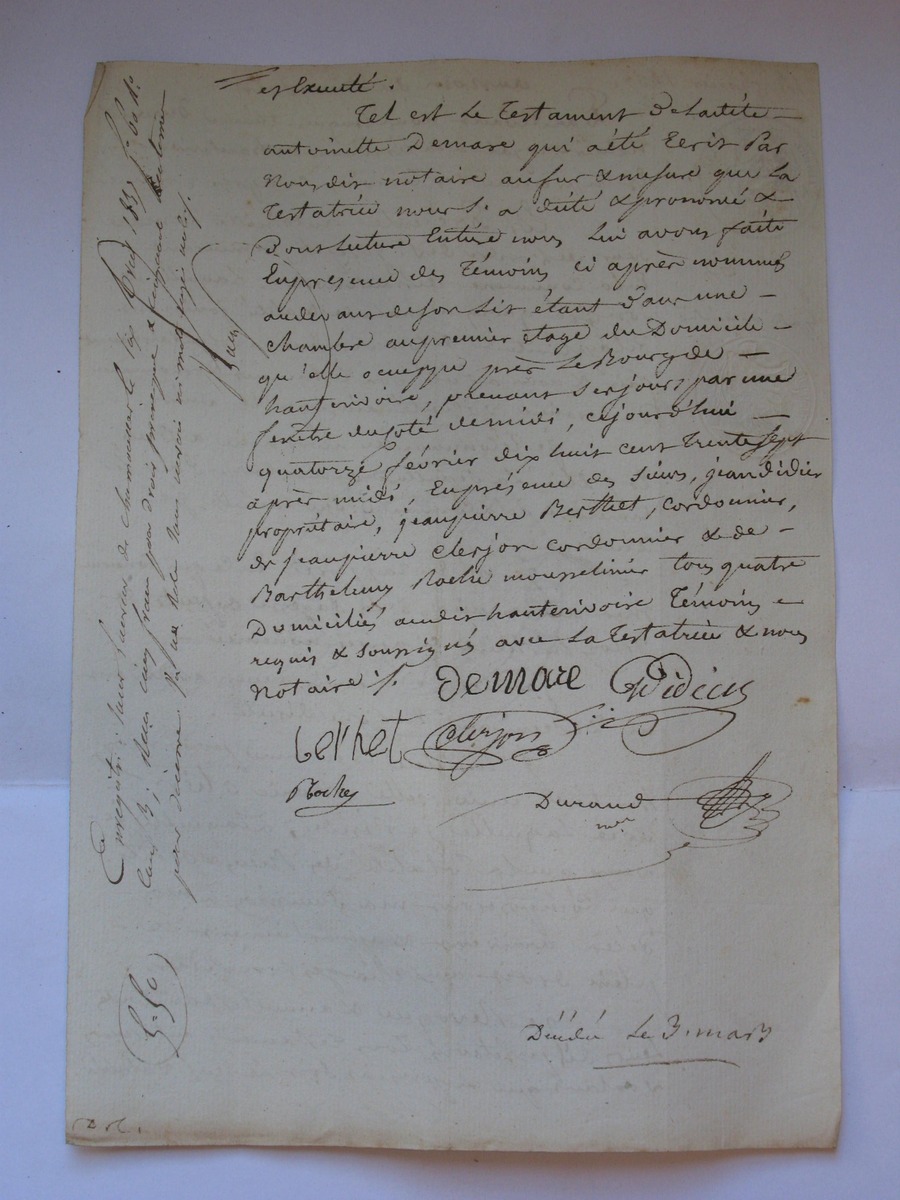 et Executé.
Tel est Le Testament de Ladite
antoinette Demare qui a été Ecrit Par
Nousdit notaire aufur & mesure que La
Testatrice nous l'a dicté & prononcé &
Dont Lecture Entière nous Lui avons faite
En presence des Témoins ci après nommés
audevant de son Lit étant dans une
chambre au premier étage du Domicile
qu'elle occuppe près Le Bourg de
hauterivoire, prenant ses jours par une
fenêtre du coté de midi, cejourd'hui
quatorze février dix huit cent trente sept
après midi, En présence des sieurs, jean didier
propriétaire, jeanpierre Berthet, cordonnier,
de jeanpierre Clerjon cordonnier & de
Barthelemy Roche mousselinier tous quatre
Domiciliés audit hauterivoire Témoins
requis & soussignés avec La Testatrice & nous
notaire
Demare Didier
berthet Clerjon
Roche
Durand
nre
Décédée Le 3. mars
Enregistré à Saint Laurent de chamousset le 1837 f°
cinq francs pour droit principal & cinquante centimes
pour decime
5=50